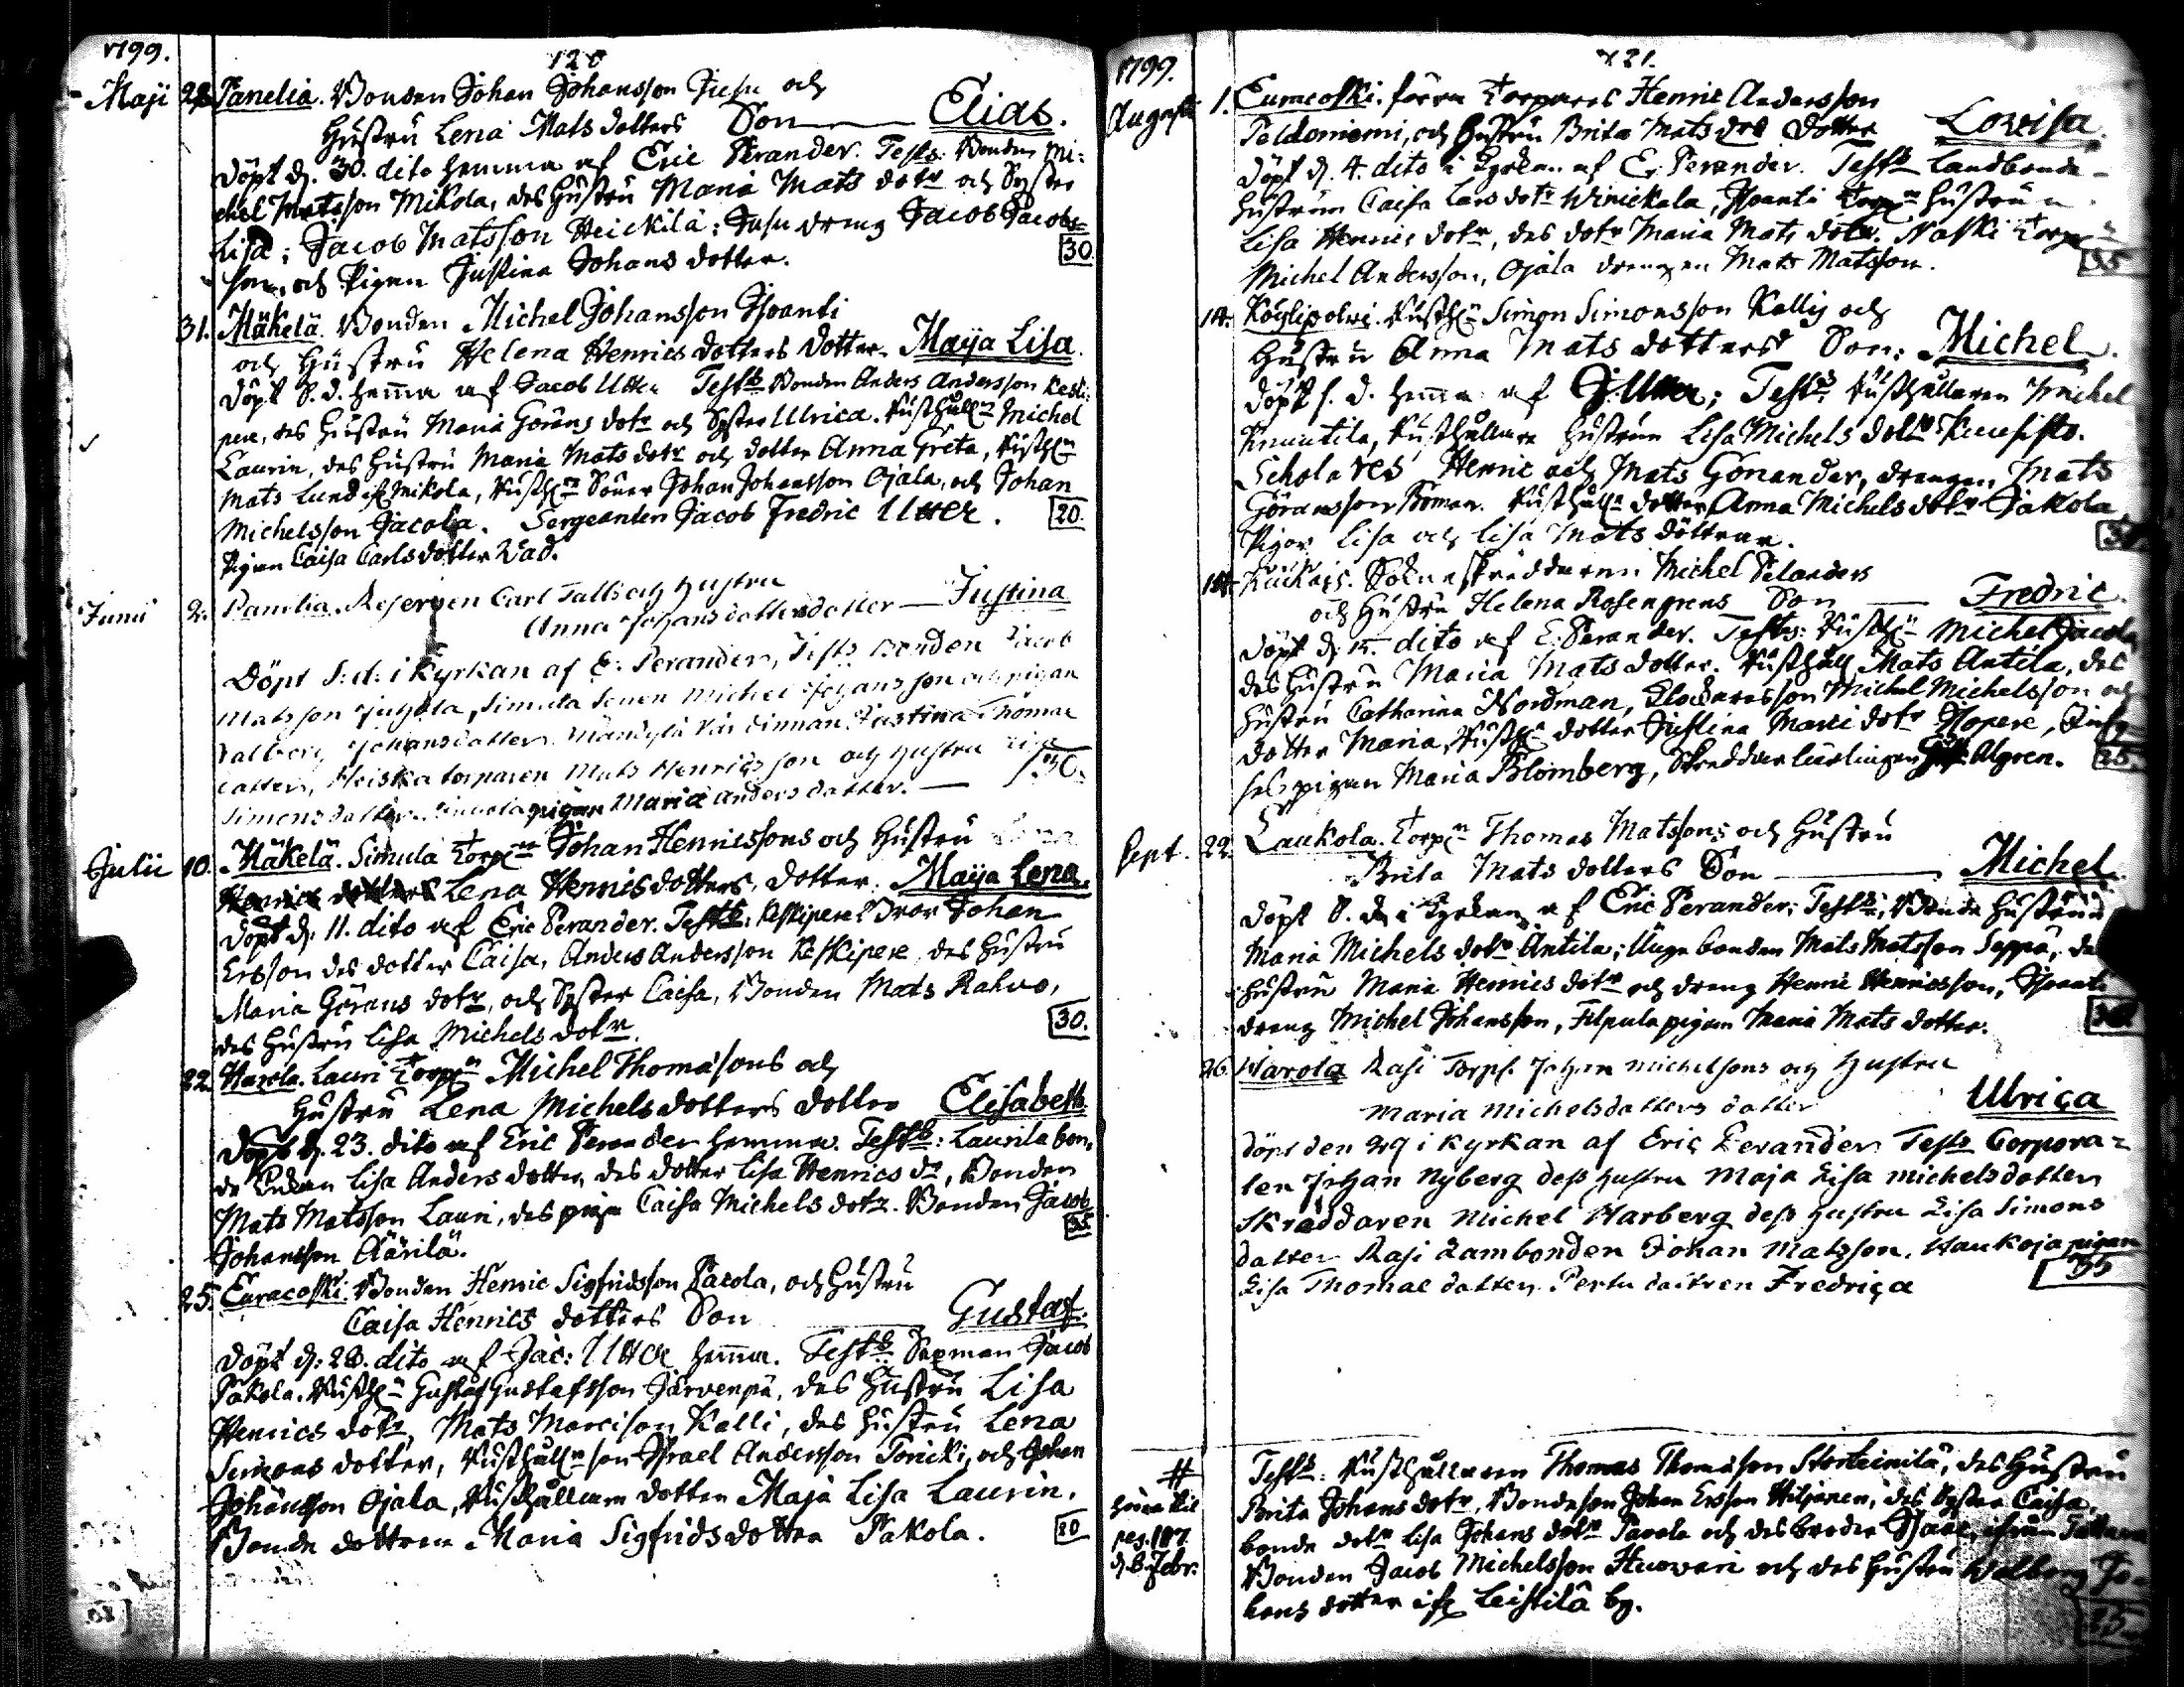 1799.
120
Maji 28. Panelia. Bonden Johan Johansson Jusu och
Hustru Lena Mats dotters Son Elias.
döpt d. 30. dito hemma af Eric Perander. Test: Bonden Mi-
chel Matsson Mikola, des Hustru Maria Mats dotr och Syster
Lisa; Jacob Matsson Heickilä: Jusu dreng Jacob Jacobs-
son, och Pigan Justina Johans dotter. 30.
31. Mäkelä. Bonden Michel Johansson Isoanti
och Hustru Helena Henrics dotters dotter Maija Lisa.
döpt S. d. hemma af Jacob Utter Testb Bonden Anders Andersson Keski-
pere, des Hustru Maria Görans dotr och Syster Ulrica. Rusthålln Michel
Laurin, des Hustru Maria Mats dotr och dotter Anna Greta, Rusthn
Mats Lund Mikola, Rusthn Soner Johan Johansson Ojala, och Johan
Michelsson Jacola. Sergeanten Jacob Fredric Utter. 20.
Pigan Caisa Carlsdotter Vad.
Junii 2. Panelia. Reserven Carl Falls och Hustru
Anna Johansdotters dotter Justina
Döpt S: d: i Kyrkan af E: Perander, Tests Bonden Jacob
Matsson Juhola, Simula Sonen Michel Johansson och pigan
Valborg Johansdotter Justina Thomae
dotter, Heiska torparen Mats Henricsson och Hustru Lisa
Simonsdotter pigan Maria Andersdotter. 30.
Julii 10. Mäkelä. Simula Torpn Johan Henricssons och Hustru
Lena Henricsdotters dotter. Maija Lena.
döpt d. 11. dito af Eric Perander. Testb: Keskipere Bror Johan
Ersson des dotter Caisa, Anders Andersson Keskipere, des Hustru
Maria Görans dotr, och Syster Caisa, Bonden Mats Rahvo,
des Hustru Lisa Michels dotr. 30.
22. Harola. Lauri Torpn Michel Thomasons och
Hustru Lena Michelsdotters dotter Elisabeth
döpt d. 23. dito af Eric Perander hemma. Testb: Laurila bon-
de Enkan Lisa Anders dotter, des dotter Lisa Henrics dr, Bonden
Mats Matsson Lauri, des piga Caisa Michels dotr. Bonden Jacob
Johansson Äärilä. 35
25. Euracoski. Bonden Henric Sigfridsson Pacola, och Hustru
Caisa Henrics dotters Son Gustaf.
döpt d: 28. dito af Jac: Utter hemma. Testb: Sexman Jacob
Pakola. Rusthn Gustaf Gustafsson Järvenpä, des Hustru Lisa
Henrics dotr, Mats Marcison Kalli, des Hustru Lena
Simons dotter, Rusthålln son Israel Andersson Toricki, och Johan
Johansson Ojala, Rusthållarn dotter Maja Lisa Laurin,
Bonde dottren Maria Sigfridsdotter Pakola. 20
1799.
121.
Augusti 1. Euracoski. förra Torparns Henric Andersson
Peldoniemi, och Hustru Brita Mats dotr Dotter Lovisa.
döpt d. 4. dito i Kyrkan af E. Perander. Testb Landbonde-
hustrun Caisa Lars dotr Winickala, Isoanti Torpn Hustru
Lisa Henrics dotr, des dotr Maria Mats dotr. Naski Torpn
Michel Andersson, Ojala drengen Mats Matsson. 35
14. Köylipolvi. Rusthn Simon Simonsson Kallij och
Hustru Anna Mats dotters Son; Michel.
döpt s. d. hemma af J. Utter; Testb Rusthållaren Michel
Knuutila, Rusthållare Hustrun Lisa Michels dotr Kuusisto.
Scholares Henric och Mats Gonander, drengen Mats
Göransson Roman. Rusthålln dotter Anna Michels dotr Jakola
Pigor Lisa och Lisa Mats döttrar.
14. Kaukois. Soknskräddaren Michel Selanders
och Hustru Helena Rosengrens Son Fredric
döpt d. 15. dito af E: Perander. Tests: Rusthn Michel Jacola
des Hustru Maria Mats dotter. Rusthåll Mats Antila, des
Hustru Catharina Nordman, Klockaresson Michel Michelsson och
dotter Maria, Rusthn dotter Justina Marci dotr Hopere,
pigan Maria Blomberg, Skreddar lärlingen Algren. 25.
Sept. 22. Laukola. Torpn Thomas Matssons och Hustru
Brita Mats dotters Son Michel
döpt S. d. i Kyrkan af Eric Perander; Testb: Bonde Hustrun
Maria Michels dotr Antila; Unga bonden Mats Matsson Seppä, des
Hustru Maria Henrics dotr och dreng Henric Henricsson, Isoanti
dreng Michel Johansson, Filpula pigan Maria Mats dotter.
26. Harola Rasi Torp. Johan Michelsons och Hustru
Maria Michelsdotters dotter Ulrica
döpt den 29 i Kyrkan af Eric Perander Tests Corpora-
len Johan Nyberg dess Hustru Maja Lisa Michelsdotter
Skräddaren Michel Harberg dess Hustru Lisa Simons
dotter Rasi Lambonden Johan Matsson. Haukoja pigan
Lisa Thomae dotter. Pertu dottren Fredrica 35
#
pag. 107
d. 8. Febr.
Testb: Rusthållaren Thomas Thomasson Storteinilä, des Hustru
Brita Johans dotr, Bondeson Johan Ersson Hiljanen, des Syster Caisa.
bonde dotr Lisa Johans dotr Pavola och des broder
Bonden Jacob Michelsson Huovari och des Hustru Walborg Jo-
hans dotter if Leistilä by.
25